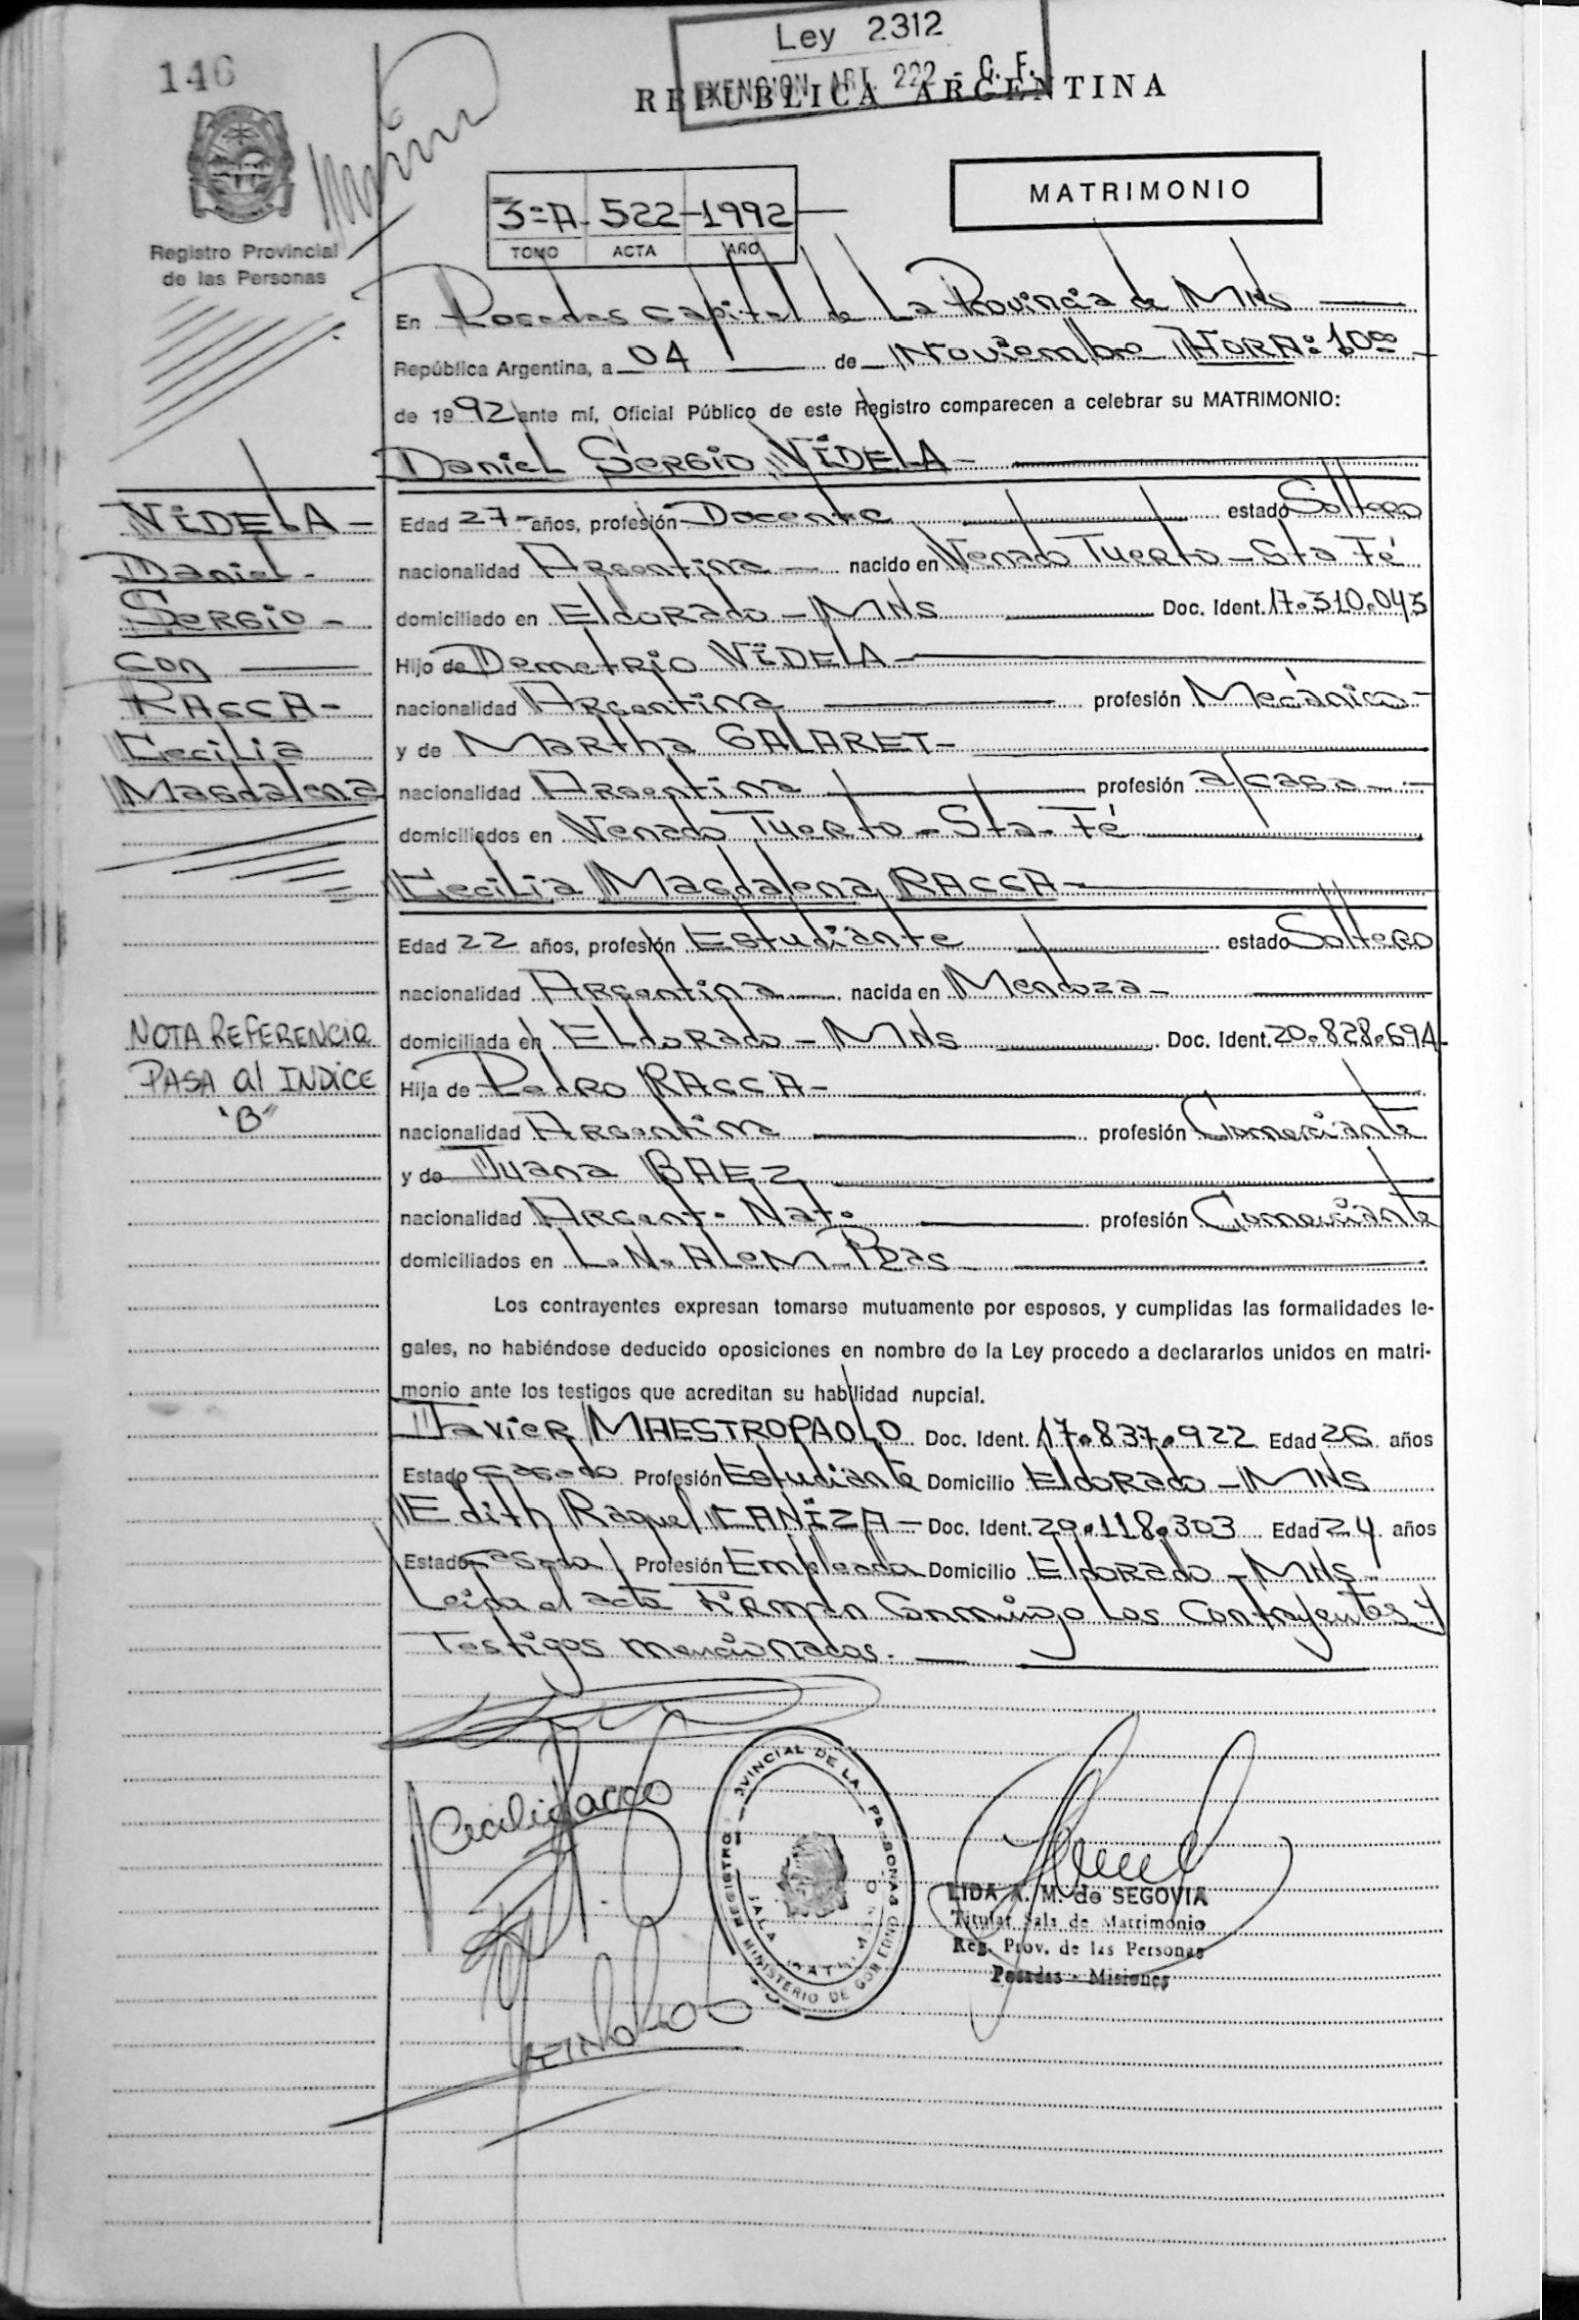 146
Ley 2312
EXENCION ART. 222 - C. F.
REPUBLICA ARGENTINA
Registro Provincial
de las Personas
MATRIMONIO
3ºA - 522 - 1992
TOMO ACTA AÑO
En Posadas Capital de La Provincia de MNs
República Argentina, a 04 de Noviembre HORA: 10ºº
de 1992 ante mí, Oficial Público de este Registro comparecen a celebrar su MATRIMONIO:
Daniel Sergio VIDELA -
VIDELA -
Daniel -
Sergio -
con
RACCA -
Cecilia
Magdalena
Edad 27 - años, profesión Docente estado Soltero
nacionalidad Argentina nacido en Venado Tuerto - Sta Fé
domiciliado en Eldorado - MNs Doc. Ident. 17.310.043
Hijo de Demetrio VIDELA -
nacionalidad Argentina profesión Mecánico -
y de Martha GALARET -
nacionalidad Argentina profesión a/casa -
domiciliados en Venado Tuerto - Sta - Fé
Cecilia Magdalena RACCA -
Edad 22 años, profesión Estudiante estado Soltero
nacionalidad Argentina nacida en Mendoza -
domiciliada en Eldorado - MNs Doc. Ident. 20.828.694
Hija de Pedro RACCA -
nacionalidad Argentina profesión Comerciante
y de Juana BAEZ
nacionalidad Argent. Nat. profesión Comerciante
domiciliados en L. N. Alem - Pzas
NOTA REFERENCIA
PASA al INDICE
"B"
Los contrayentes expresan tomarse mutuamente por esposos, y cumplidas las formalidades le-
gales, no habiéndose deducido oposiciones en nombre de la Ley procedo a declararlos unidos en matri-
monio ante los testigos que acreditan su habilidad nupcial.
Javier MAESTROPAOLO Doc. Ident. 17.837.922 Edad 26 años
Estado casado Profesión Estudiante Domicilio Eldorado - MNs
Edith Raquel CANIZA - Doc. Ident. 20.118.303 Edad 24 años
Estado casada Profesión Empleada Domicilio Eldorado - MNs -
Leida el acta Firman Conmigo Los Contrayentes y
Testigos mencionados. -
Cecilia Racca
REGISTRO PROVINCIAL DE LAS PERSONAS
MINISTERIO DE GOBIERNO
SALA MATRIMONIO
LIDA A. M. de SEGOVIA
Titular Sala de Matrimonio
Reg. Prov. de las Personas
Posadas - Misiones